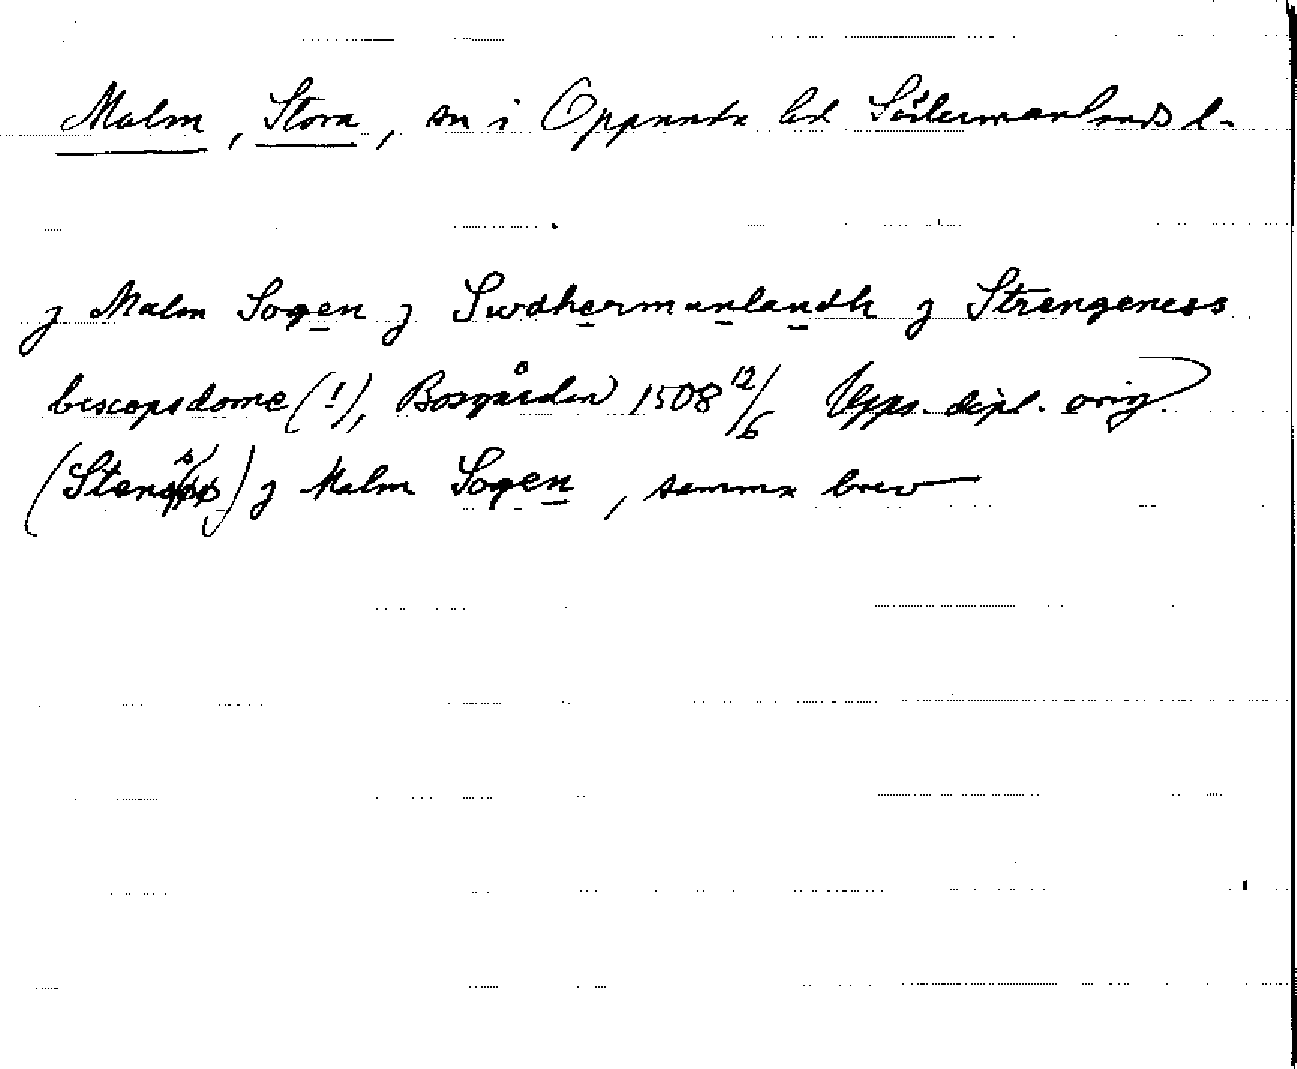 Malm, Stora, sn i Oppunda hd Södermanlands l.
j Malm Sogen j Swdhermanlandh j Strengeness
biscopsdome (!), Bosgården 1508 12/6 Upps. dipl. orig.
j Malm Sogen, samma brev